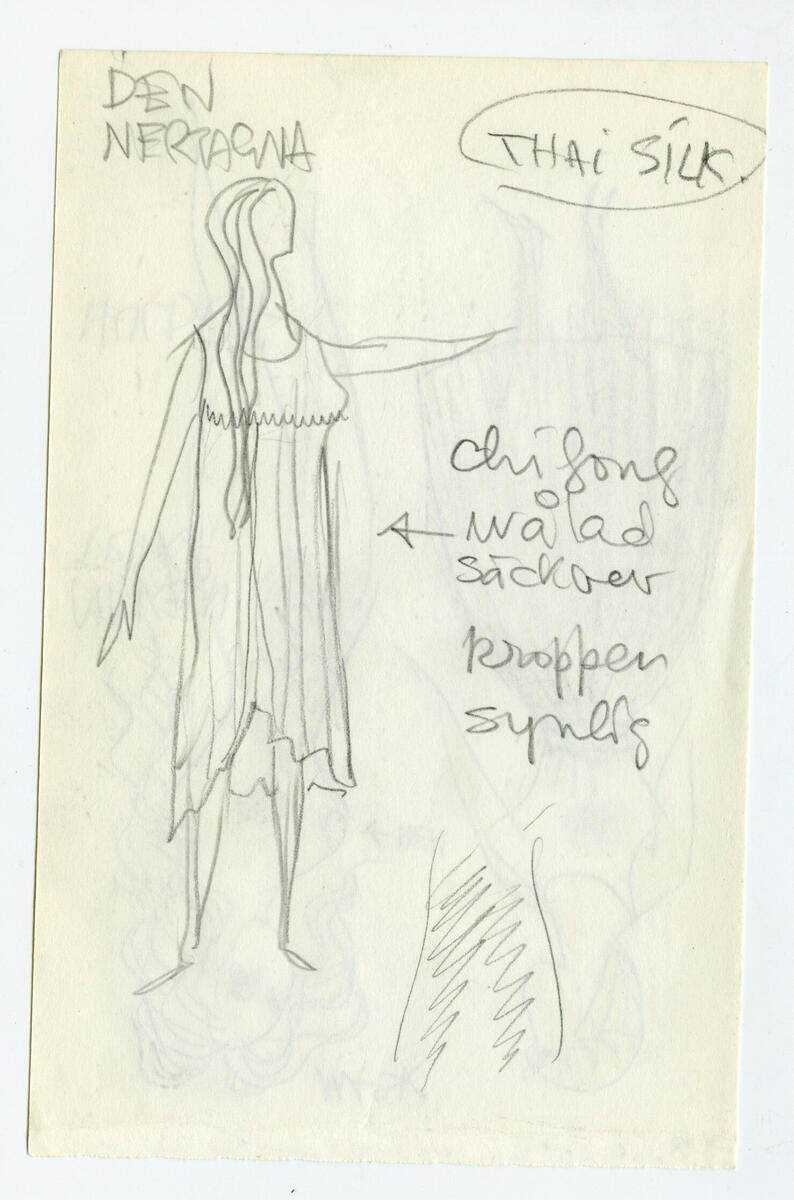 DEN
NERTAGNA
THAi SILK.
chifong
målad
säckvev
kroppen
synlig